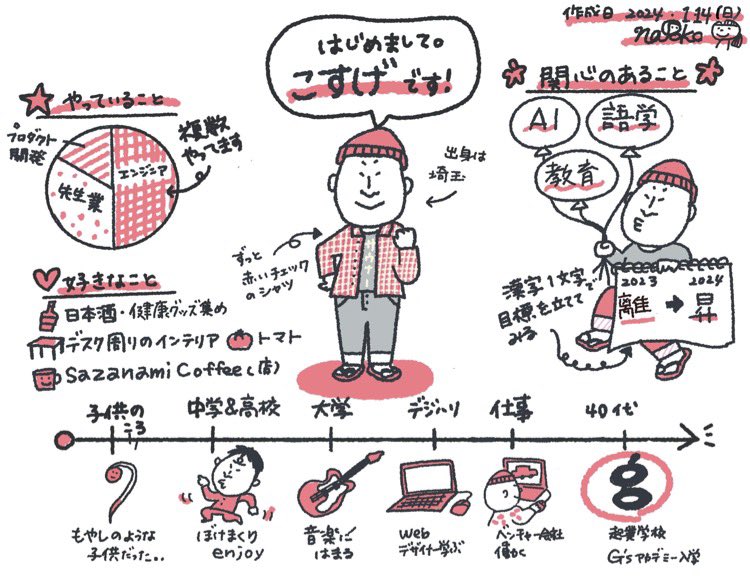 作成日 2024.1.14(日)
はじめまして。
こすげです!
やっていること
プロダクト
開発
エンジニア
先生業
複数
やってます
出身は
埼玉
ずっと
赤いチェック
のシャツ
サウナ
関心のあること
AI
語学
教育
漢字1文字で
目標を立てて
みる
2023
2024
離
昇
好きなこと
日本酒・健康グッズ集め
デスク周りのインテリア
トマト
Sazanami Coffee(店)
子供の
頃
中学&高校
大学
デジハリ
仕事
40代
もやしのような
子供だった..
ぼけまくり
enjoy
音楽に
はまる
Web
デザイナー学ぶ
ベンチャー会社
働く
起業学校
G'sアカデミー入学